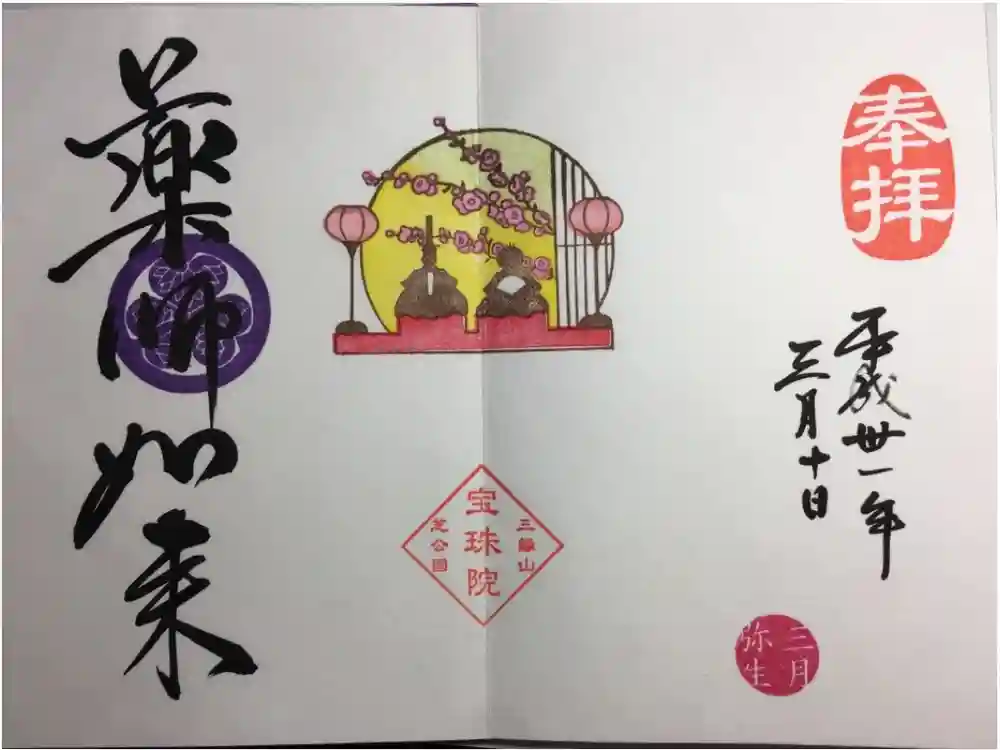 奉拝
平成卅一年
三月十日
三月
弥生
三縁山
宝珠院
芝公園
薬師如来